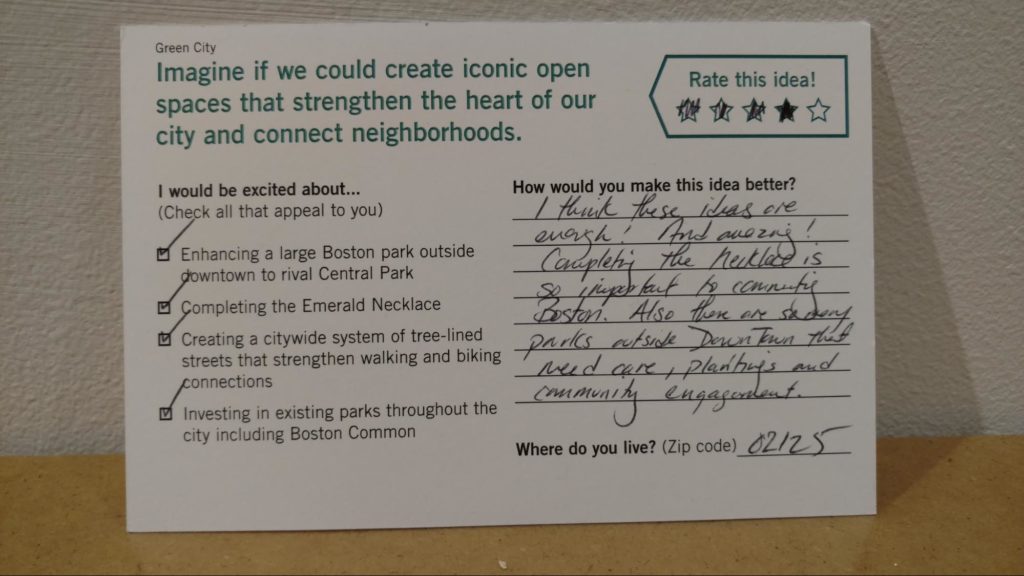 Green City
Imagine if we could create iconic open
spaces that strengthen the heart of our
city and connect neighborhoods.
Rate this idea!
I would be excited about...
(Check all that appeal to you)
Enhancing a large Boston park outside
downtown to rival Central Park
Completing the Emerald Necklace
Creating a citywide system of tree-lined
streets that strengthen walking and biking
connections
Investing in existing parks throughout the
city including Boston Common
How would you make this idea better?
I think these ideas are
enough! And amazing!
Completing the Necklace is
so important to commuting
Boston. Also there are so many
parks outside DownTown that
need care, plantings and
community engagement.
Where do you live? (Zip code) 02125